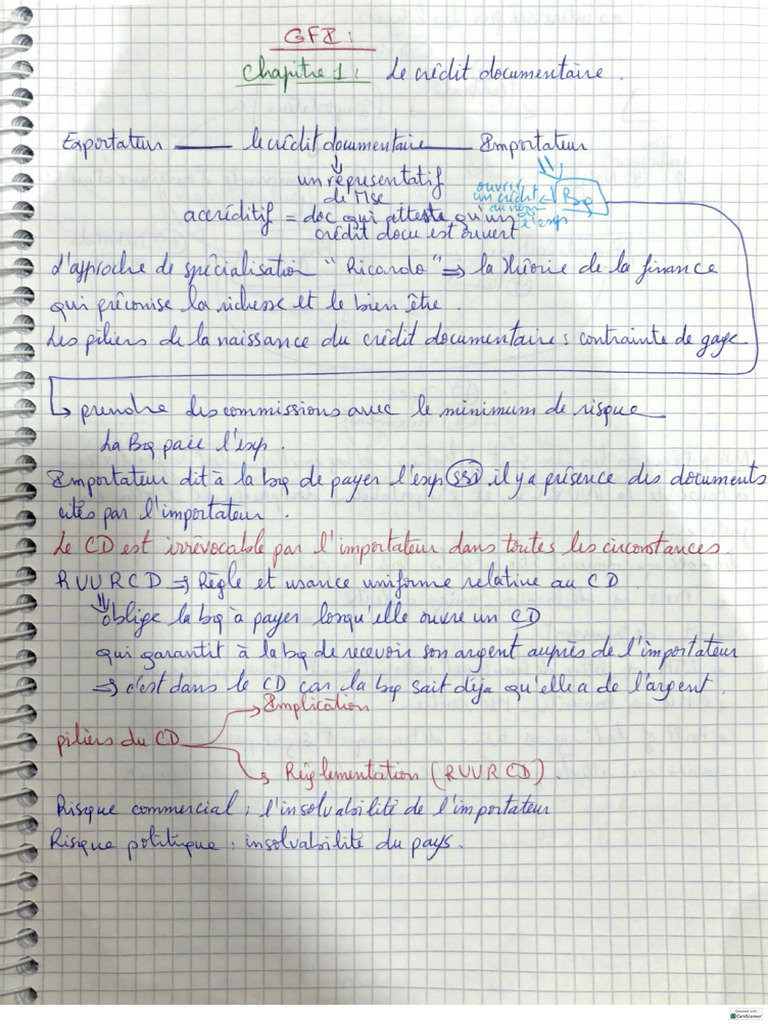 GFI :
Chapitre 1 : Le crédit documentaire.
Exportateur —— le crédit documentaire —— Importateur
un représentatif
de Mse
ouvrir
un crédit
au nom
de l'exp
Bq
accréditif = doc qui atteste qu'un
crédit docu est ouvert
L'approche de spécialisation "Ricardo" ⇒ la théorie de la finance
qui préconise la richesse et le bien être.
Les piliers de la naissance du crédit documentaire : contrainte de gage
↳ prendre des commissions avec le minimum de risque
La Bq paie l'exp.
Importateur dit à la bq de payer l'exp ssi il y a présence des documents
cités par l'importateur.
Le CD est irrévocable par l'importateur dans toutes les circonstances
RUURCD ⇒ Règle et usance uniforme relative au CD
oblige la bq à payer lorsqu'elle ouvre un CD
qui garantit à la bq de recevoir son argent auprès de l'importateur
⇒ c'est dans le CD car la bq sait déja qu'elle a de l'argent.
Implication
piliers du CD
Réglementation (RUURCD).
Risque commercial : l'insolvabilité de l'importateur
Risque politique : insolvabilité du pays.
CamScanner